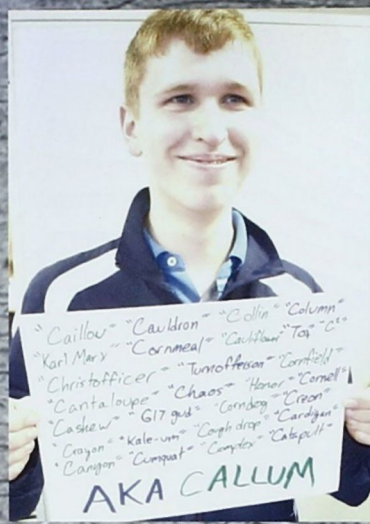 "Caillou" "Cauldron" "Collin" "Column"
"Karl Marx" "Cornmeal" "Cauliflower" "Tog" "C"
"Christofficer" "Turnofferson" "Cornfield"
"Cantaloupe" "Chaos" "Honor" "Cornell"
"Cashew" "G17 gud" "Corndog" "Creon"
"Crayon" "Kale-um" "Cough drop" "Cardigan"
"Canyon" "Cumquat" "Complex" "Catapult"
AKA CALLUM